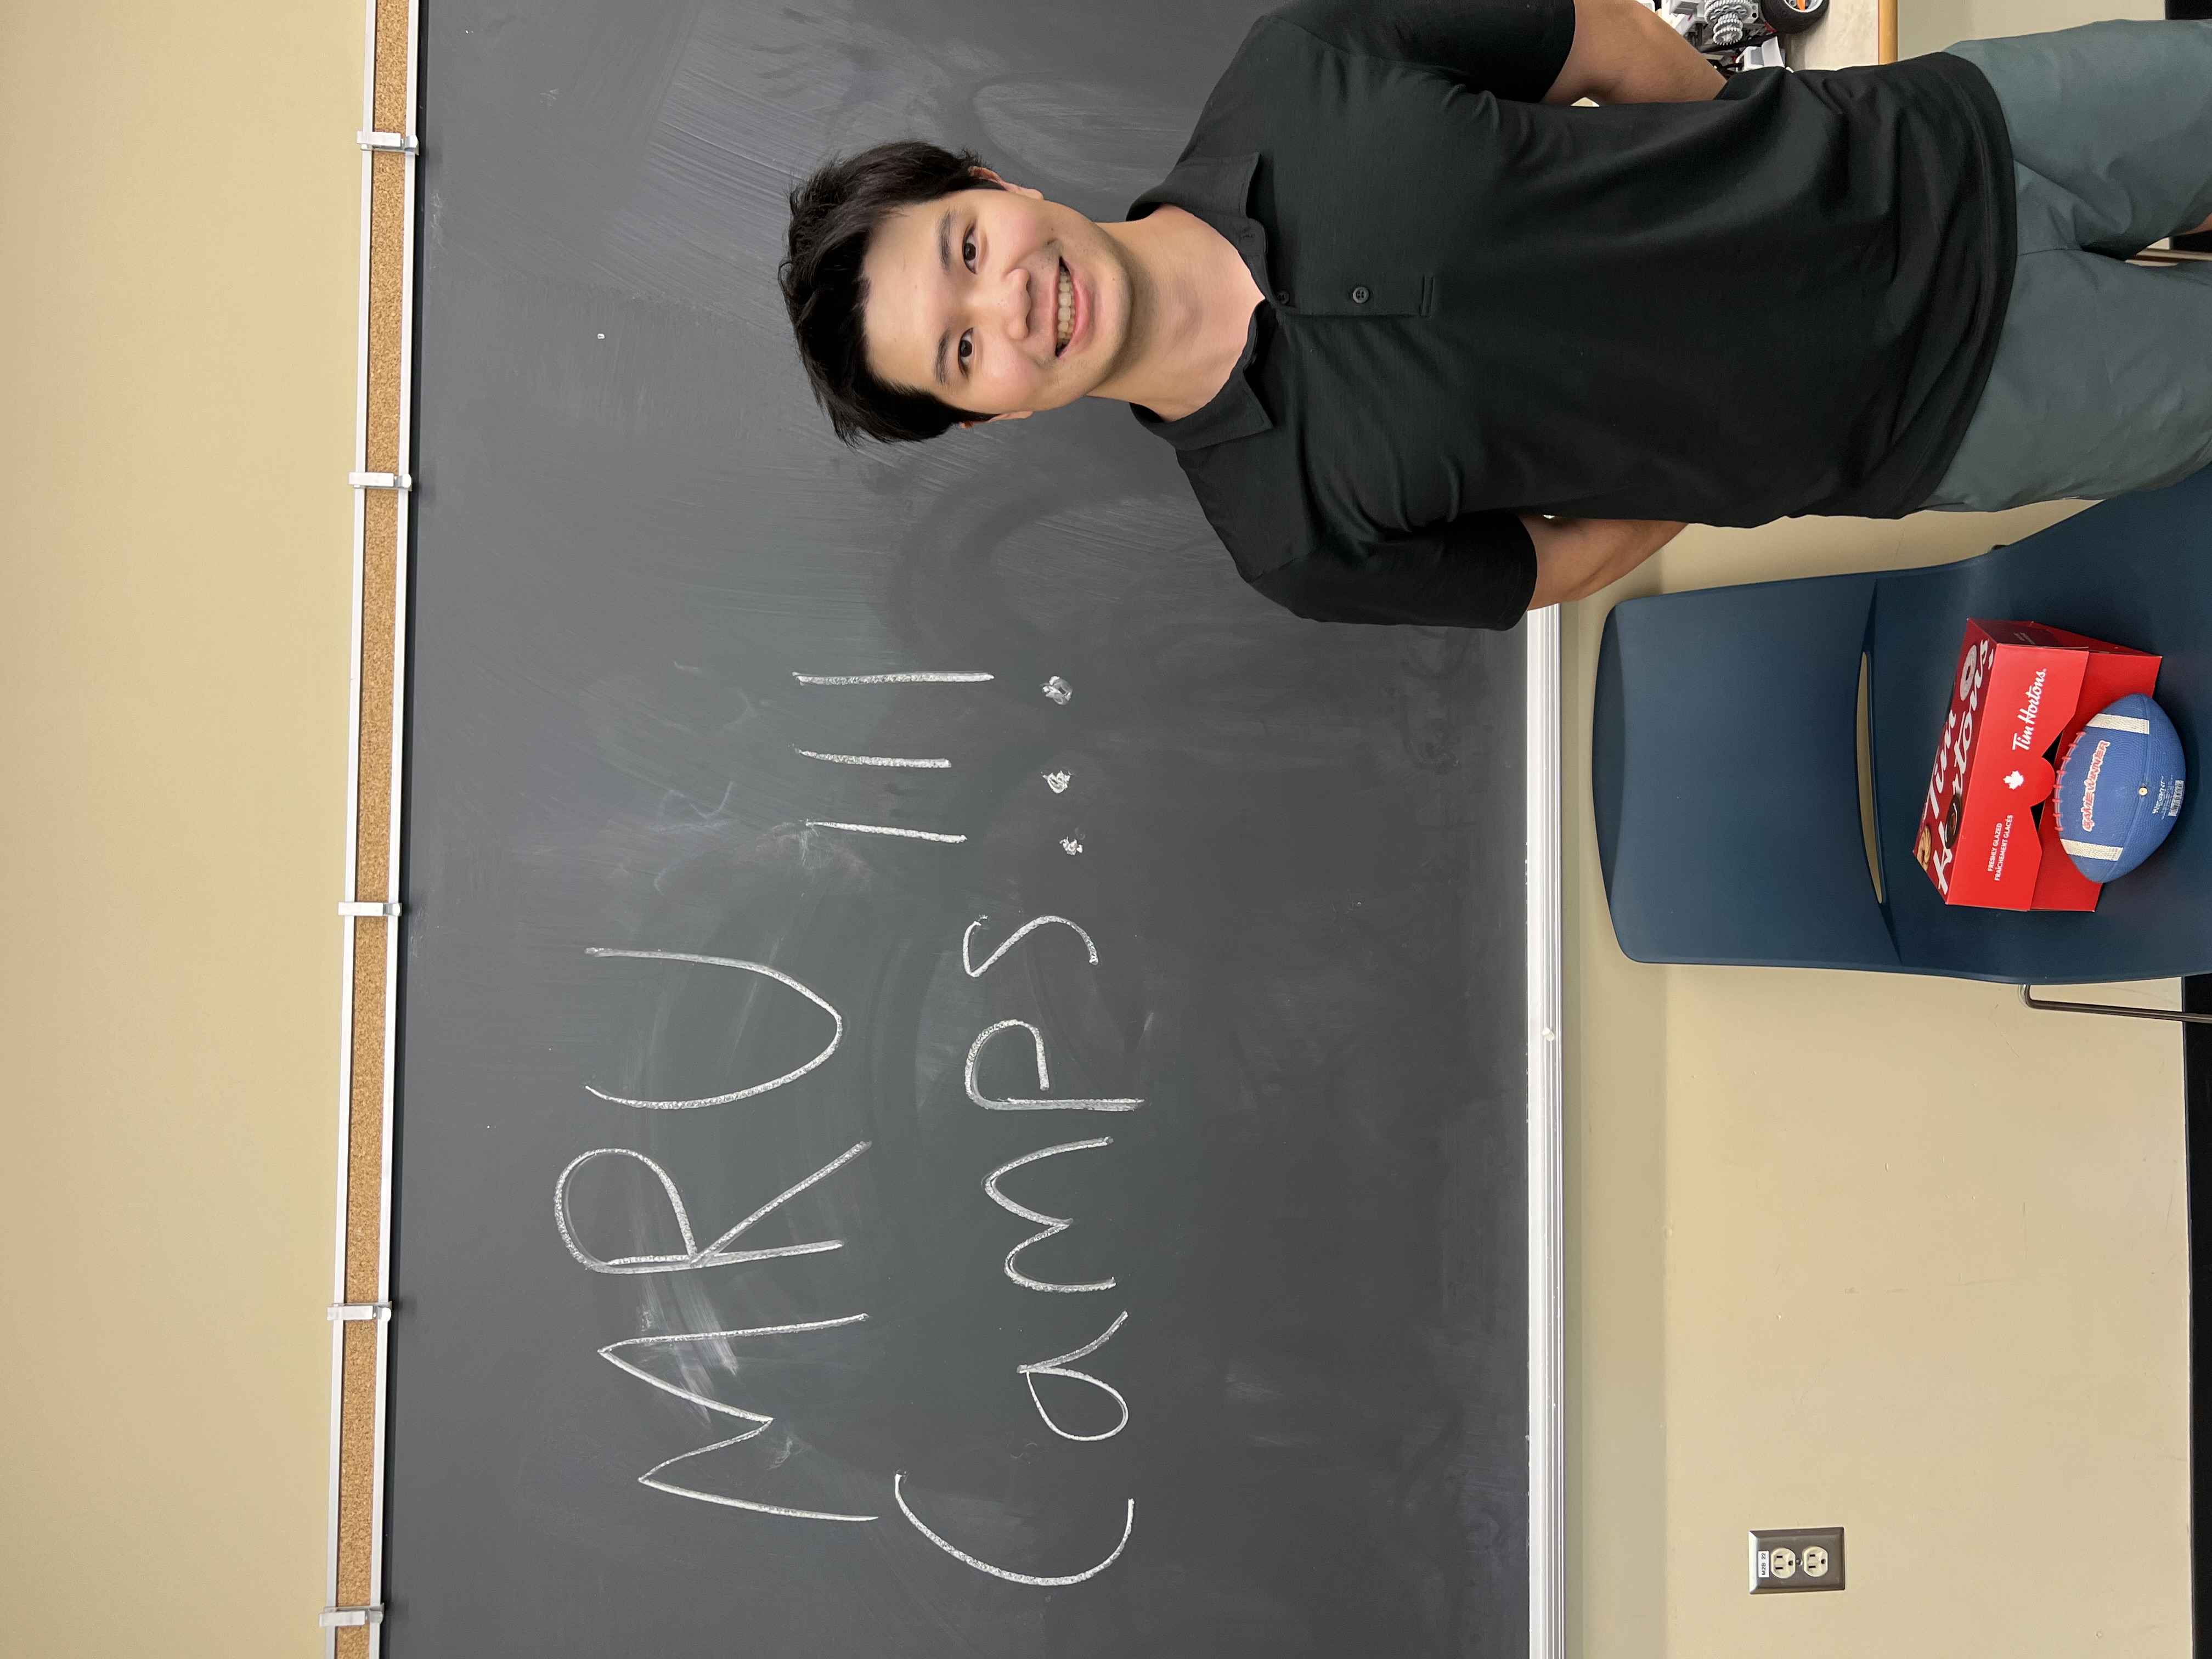 MRU
Camps!!!
M2B 22
Tim
Hortons.
FRESHLY GLAZED
FRAÎCHEMENT GLACÉS
Tim Hortons.
GAME WINNER